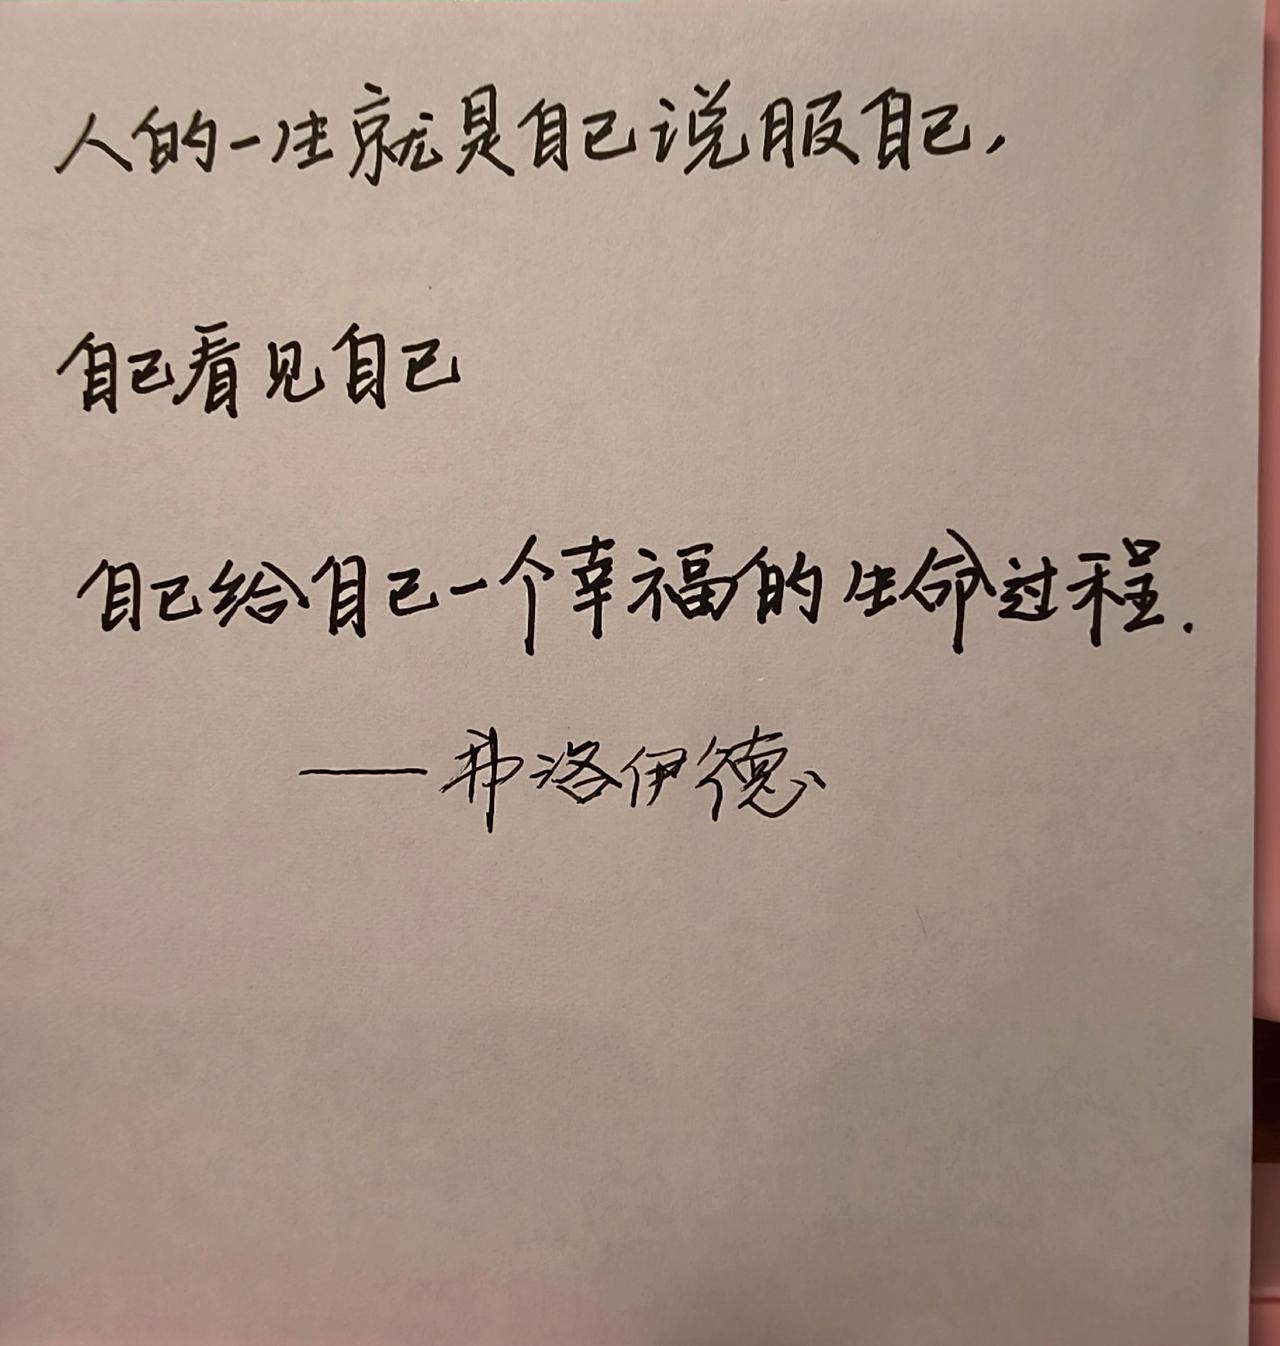 人的一生就是自己说服自己,
自己看见自己
自己给自己一个幸福的生命过程.
——弗洛伊德